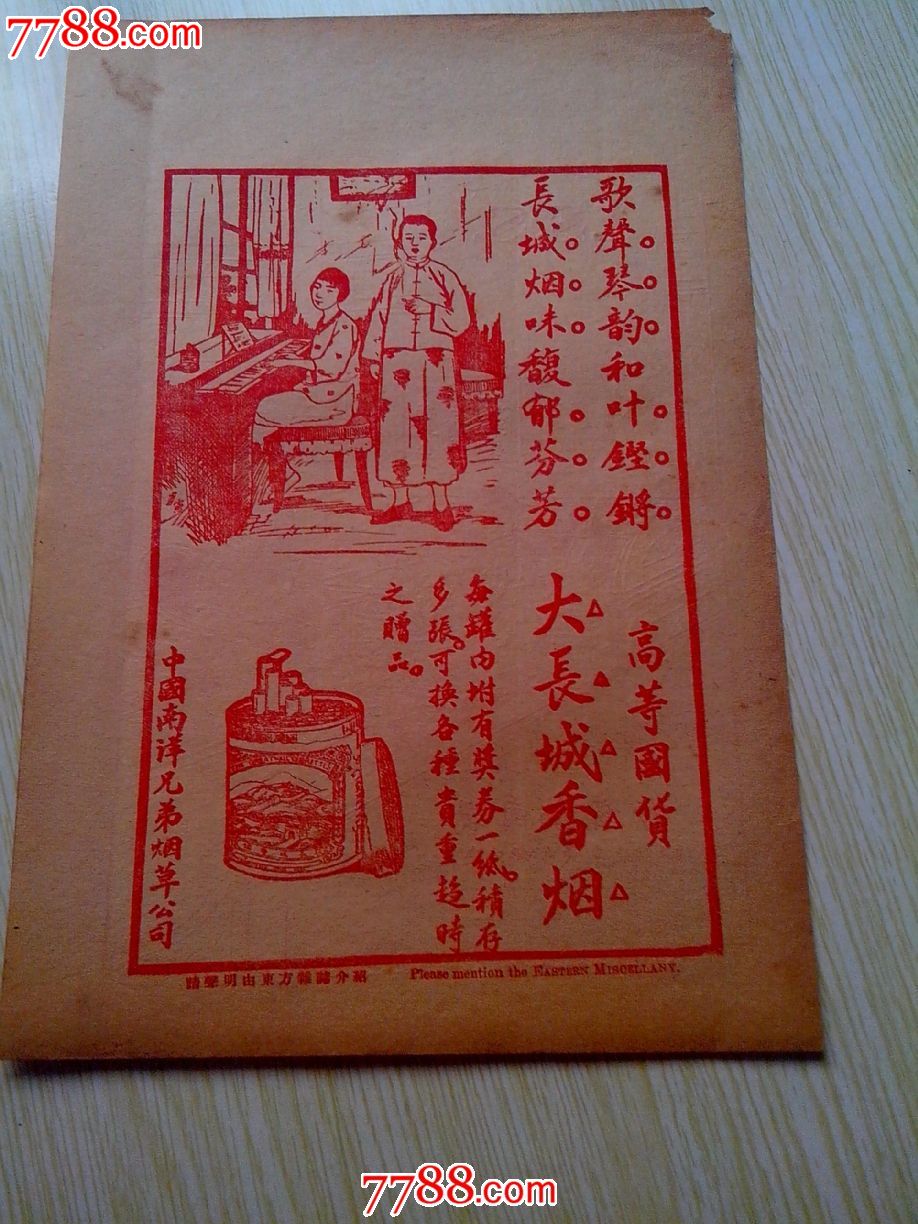 7788.com
歌聲琴韵和叶鏗鏘
長城烟味馥郁芬芳
高等國貨
大長城香烟
每罐內坿有獎券一紙。積存
多張。可換各種貴重趁時
之贈品。
中國南洋兄弟烟草公司
請聲明由東方雜誌介紹
Please mention the EASTERN MISCELLANY.
7788.com